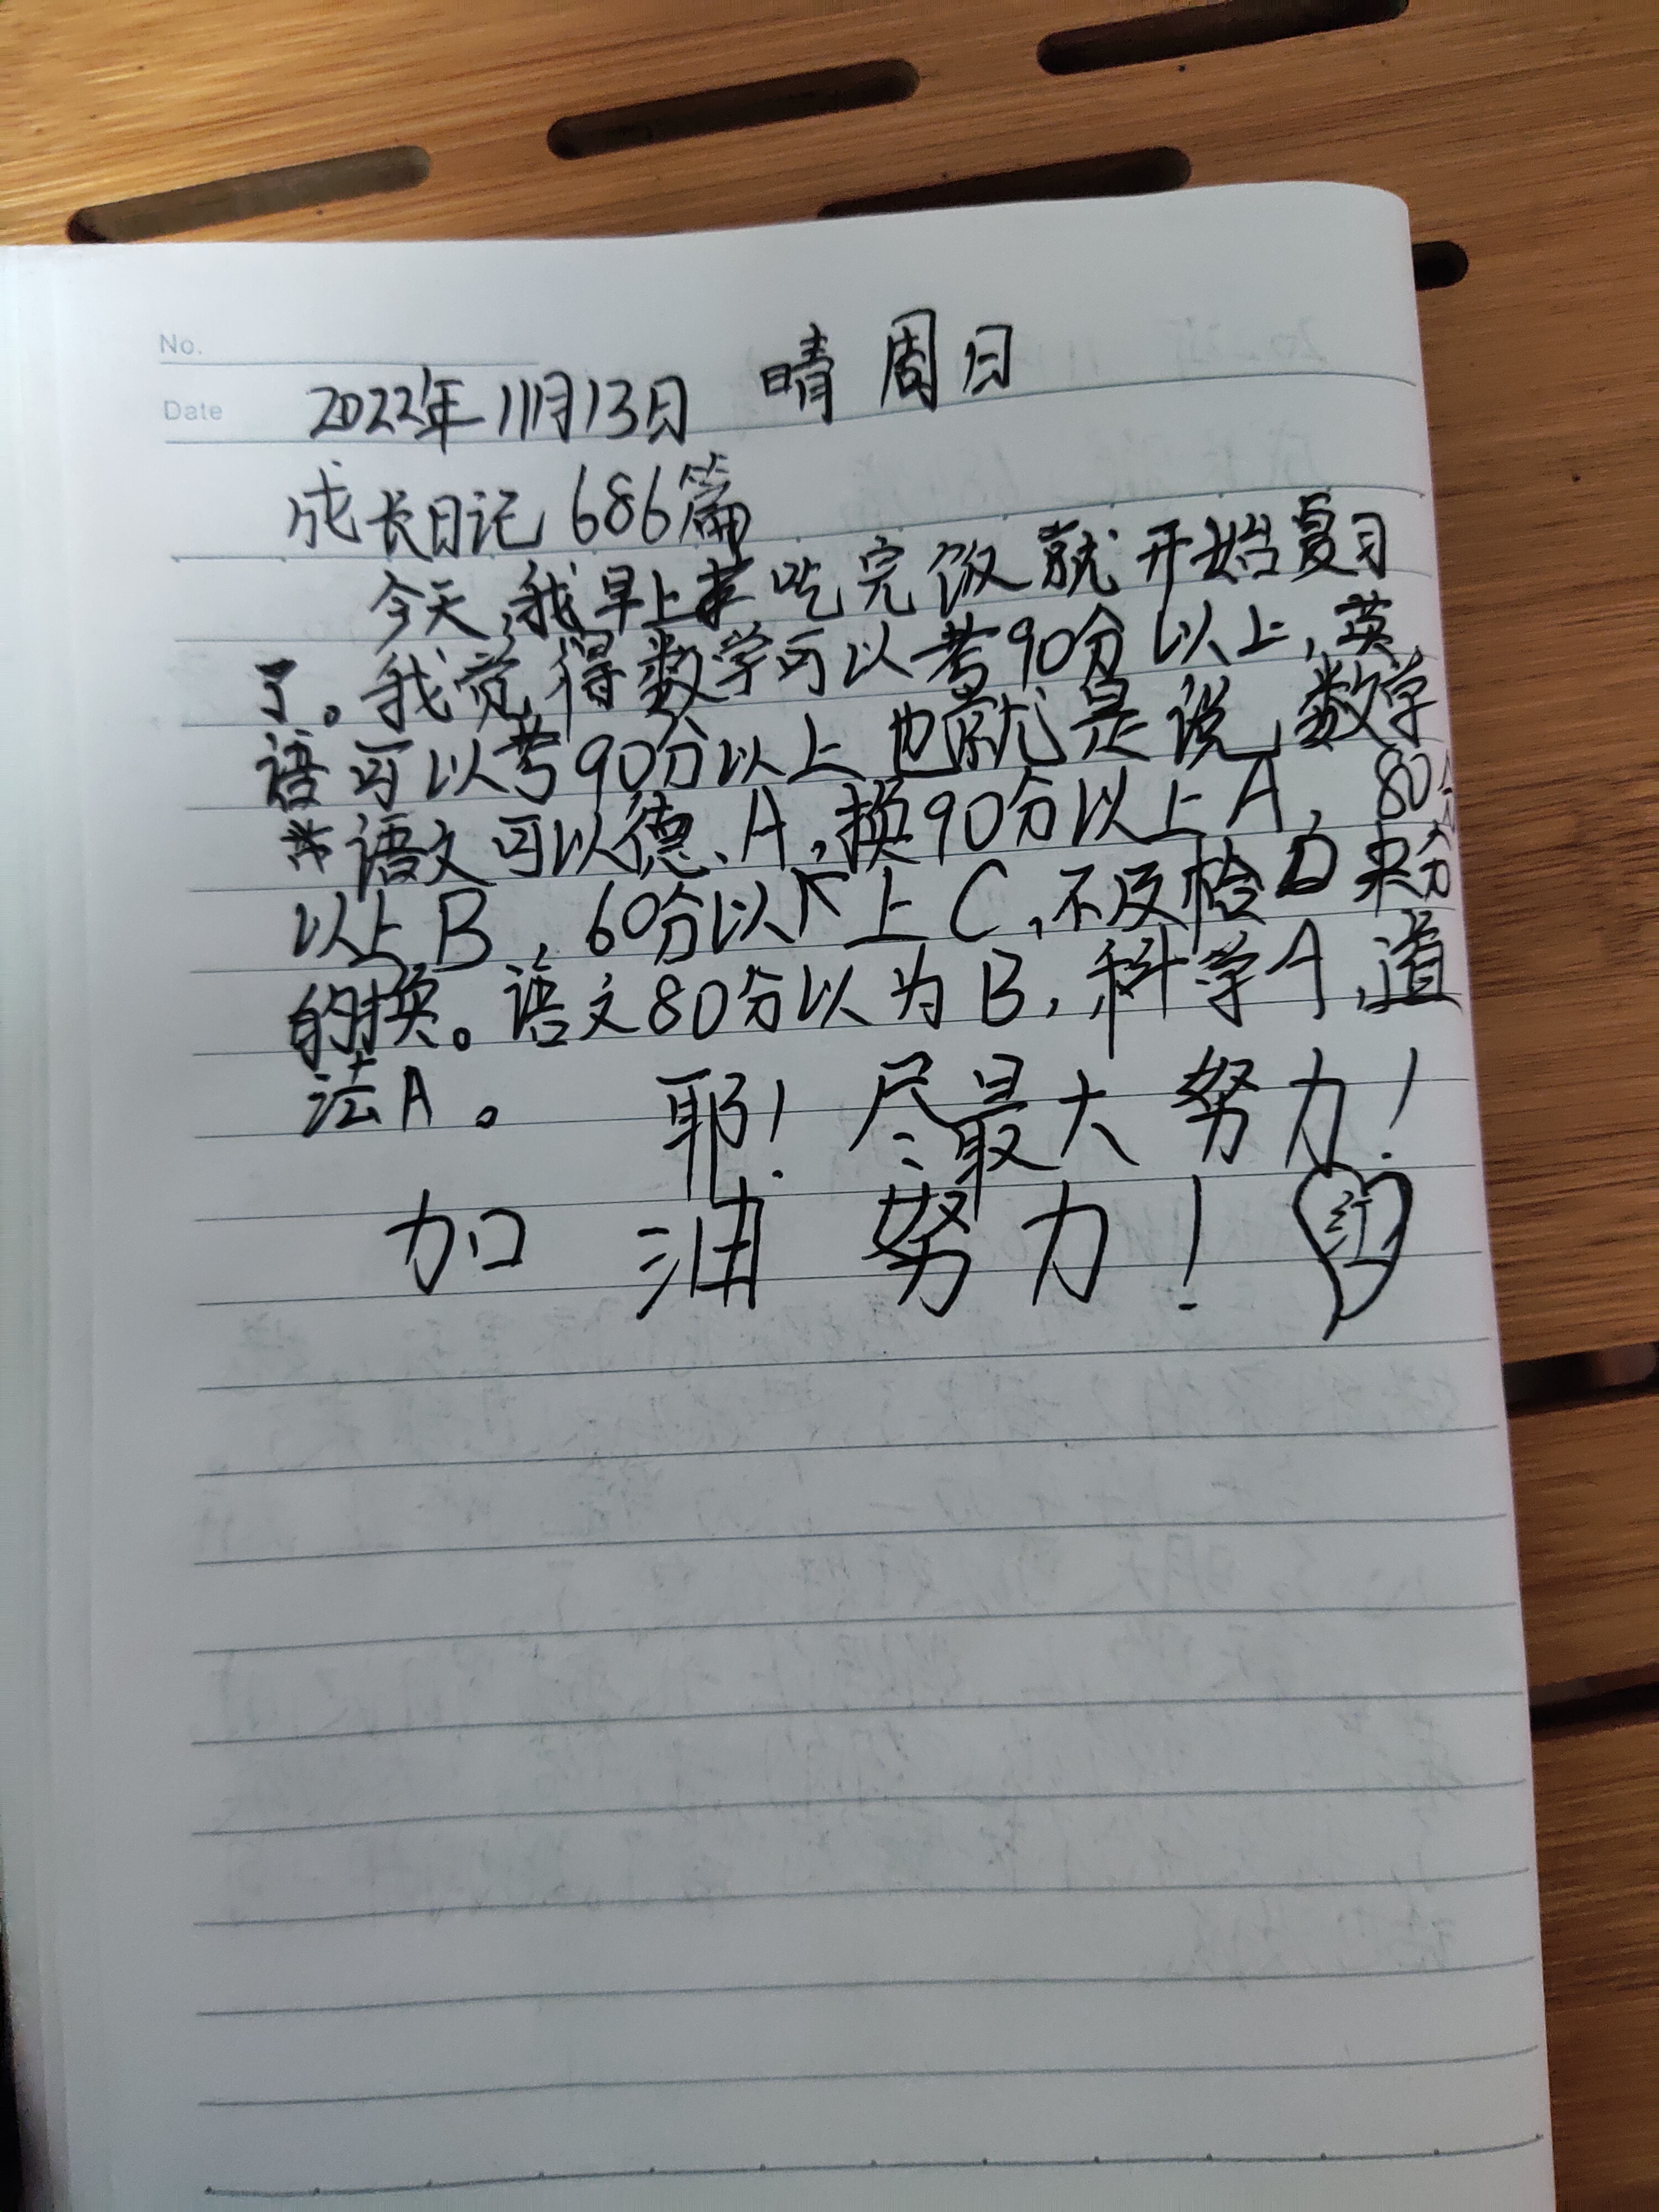 No.
Date 2022年11月13日 晴 周日
成长日记 686篇
今天,我早上吃完饭就开始复习
了。我觉得数学可以考90分以上,英
语可以考90分以上也就是说,数学
语文可以德、A,换90分以上A,80分
以上B,60分以上C,不及格D来分
的换。语文80分以为B,科学A,道
法A。 耶!尽最大努力!
加油努力!红